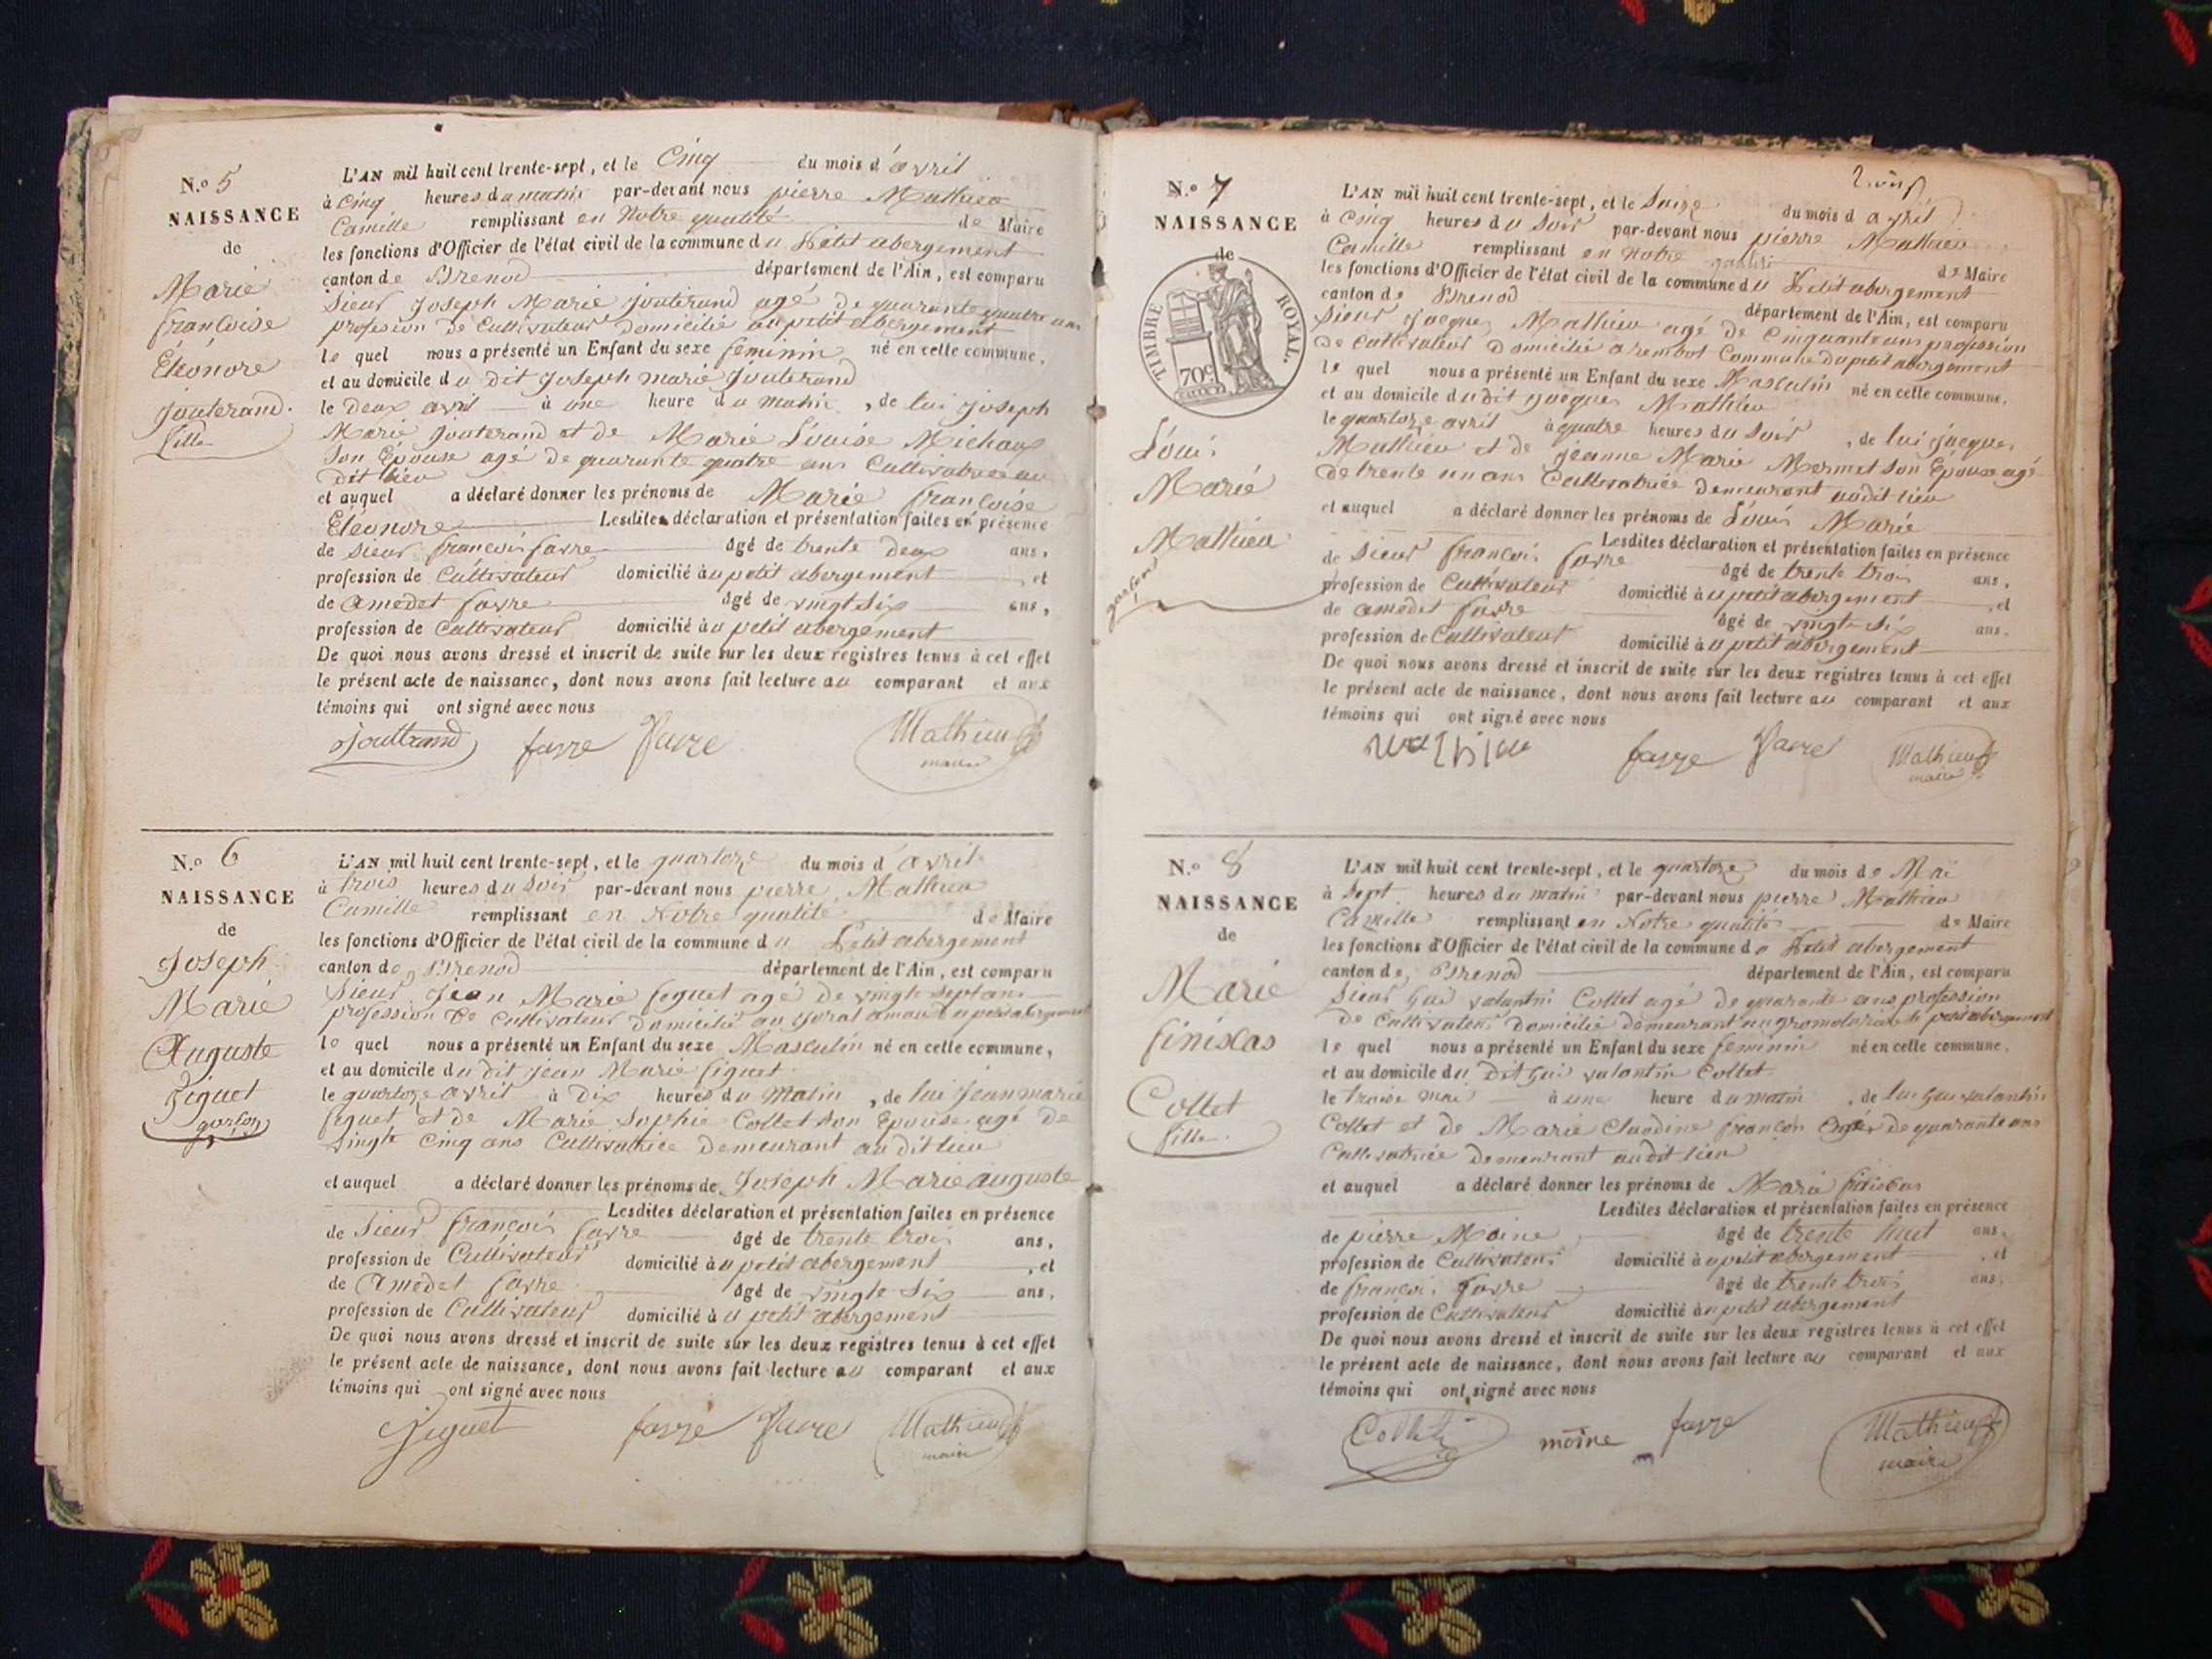 N.o 5
NAISSANCE
de
Marie
françoise
Éléonore
jouterand.
fille
L'AN mil huit cent trente-sept, et le Cinq du mois d'avril
à Cinq heures du matin par-devant nous pierre Mathieu
Camille remplissant en Notre qualité de Maire
les fonctions d'Officier de l'état civil de la commune du Petit abergement
canton de Brenod département de l'Ain, est comparu
Sieur Joseph Marie jouterand agé de quarante quatre ans
profesion de Cultivateur domicilié au petit abergement
le quel nous a présenté un Enfant du sexe feminin né en cette commune,
et au domicile du dit Joseph marie Jouterand
le deux avril à une heure du matin, de lui joseph
Marie Jouterand et de Marie Louise Michaux
Son Épouse agé de quarante quatre ans Cultivatrice au
dit lieu
et auquel a déclaré donner les prénoms de Marie françoise
Éléonore Lesdites déclaration et présentation faites en présence
de Sieur françois favre âgé de trente deux ans,
profession de Cultivateur domicilié au petit abergement, et
de amedet favre âgé de vingt six ans,
profession de Cultivateur domicilié au petit abergement
De quoi nous avons dressé et inscrit de suite sur les deux registres tenus à cet effet
le présent acte de naissance, dont nous avons fait lecture au comparant et aux
témoins qui ont signé avec nous
Jouttrand favre Favre Mathieu
maire
N.o 6
NAISSANCE
de
Joseph
Marie
Auguste
Figuet
garson
L'AN mil huit cent trente-sept, et le quartorze du mois d'avril
à trois heures du Soir par-devant nous pierre Mathieu
Camille remplissant en Notre qualité de Maire
les fonctions d'Officier de l'état civil de la commune du Petit abergement
canton de Brenod département de l'Ain, est comparu
Sieur Jean Marie figuet agé de vingt sept ans
profession de Cultivateur domicilié au
le quel nous a présenté un Enfant du sexe Masculin né en cette commune,
et au domicile du dit jean Marie figuet
le quartorze avril à Dix heures du Matin, de lui Jean marie
figuet et de Marie Sophie Collet Son Épouse agé de
vingt Cinq ans Cultivatrice demeurant au dit lieu
et auquel a déclaré donner les prénoms de Joseph Marie auguste
Lesdites déclaration et présentation faites en présence
de Sieur françois favre âgé de trente trois ans,
profession de Cultivateur domicilié au petit abergement, et
de Amedet favre âgé de vingt Six ans,
profession de Cultivateur domicilié au petit abergement
De quoi nous avons dressé et inscrit de suite sur les deux registres tenus à cet effet
le présent acte de naissance, dont nous avons fait lecture au comparant et aux
témoins qui ont signé avec nous
Figuet favre Favre Mathieu
maire
N.o 7
NAISSANCE
de
TIMBRE ROYAL.
70c
Louis
Marie
Mathieu
garson
L'AN mil huit cent trente-sept, et le Seize du mois d'avril
à Cinq heures du Soir par-devant nous pierre Mathieu
Camille remplissant en Notre qualité de Maire
les fonctions d'Officier de l'état civil de la commune du Petit abergement
canton de Brenod département de l'Ain, est comparu
Sieur Jacques Mathieu agé de Cinquante ans profession
de Cultivateur domicilié a rembot Commune du petit abergement
le quel nous a présenté un Enfant du sexe Masculin né en cette commune,
et au domicile du dit jacques Mathieu
le quartorze avril à quatre heures du Soir, de lui jacques
Mathieu et de jeanne Marie Mermet Son Épouse agé
de trente un ans Cultivatrice demeurant audit lieu
et auquel a déclaré donner les prénoms de Louis Marie
Lesdites déclaration et présentation faites en présence
de Sieur françois favre âgé de trente trois ans,
profession de Cultivateur domicilié au petit abergement, et
de amedet favre âgé de vingt six ans,
profession de Cultivateur domicilié au petit abergement
De quoi nous avons dressé et inscrit de suite sur les deux registres tenus à cet effet
le présent acte de naissance, dont nous avons fait lecture au comparant et aux
témoins qui ont signé avec nous
favre Favre Mathieu
maire
N.o 8
NAISSANCE
de
Marie
finislas
Collet
fille
L'AN mil huit cent trente-sept, et le quartorze du mois de Mai
à Sept heures du matin par-devant nous pierre Mathieu
Camille remplissant en Notre qualité de Maire
les fonctions d'Officier de l'état civil de la commune du Petit abergement
canton de Brenod département de l'Ain, est comparu
Sieur Gui valantin Collet agé de quarante ans profession
de Cultivateur domicilié demeurant au petit abergement
le quel nous a présenté un Enfant du sexe feminin né en cette commune,
et au domicile du Dit Gui valantin Collet
le treize mai à une heure du matin, de lui Gui valantin
Collet et de Marie Claudine françon Agée de quarante ans
Cultivatrice demeurant au dit lieu
et auquel a déclaré donner les prénoms de Marie finislas
Lesdites déclaration et présentation faites en présence
de pierre Moine âgé de trente huit ans,
profession de Cultivateur domicilié au petit abergement, et
de françois favre âgé de trente trois ans,
profession de Cultivateur domicilié au petit abergement
De quoi nous avons dressé et inscrit de suite sur les deux registres tenus à cet effet
le présent acte de naissance, dont nous avons fait lecture au comparant et aux
témoins qui ont signé avec nous
Collet moine favre Mathieu
maire